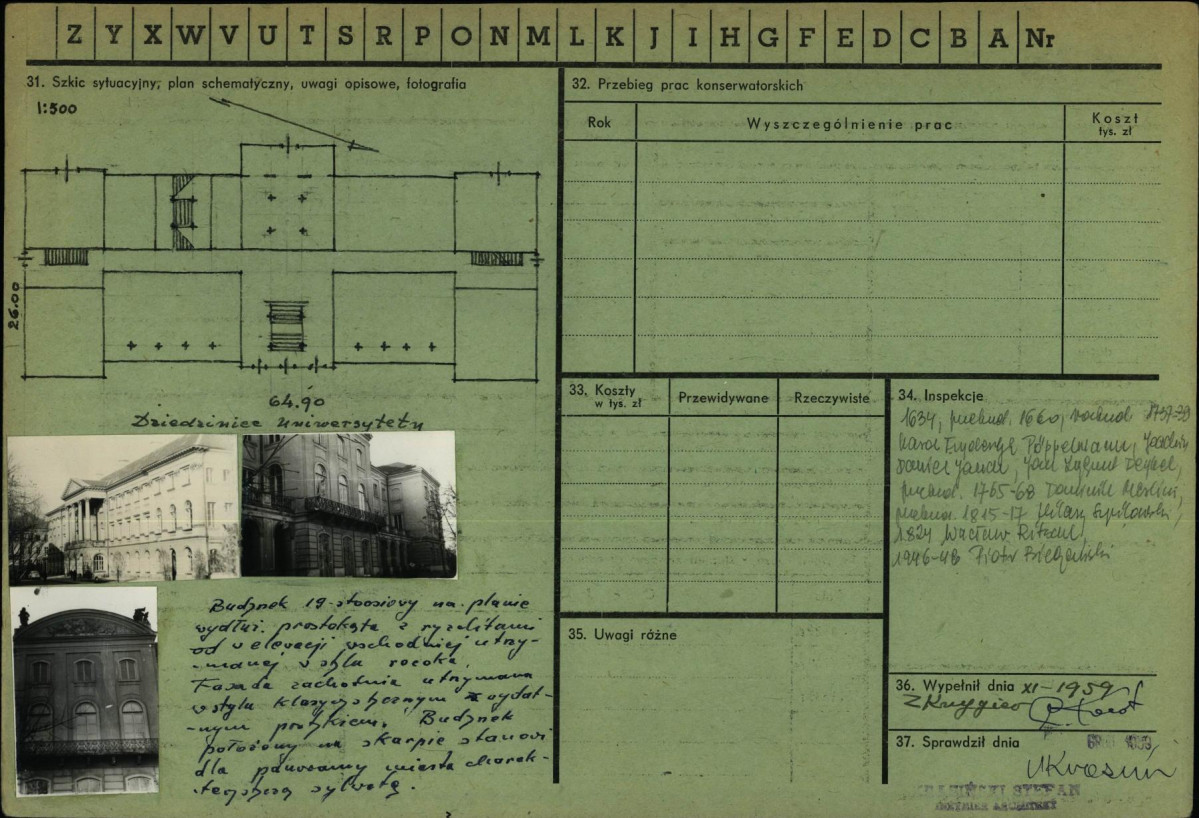 Z Y X W V U T S R P O N M L K J I H G F E D C B A Nr
31. Szkic sytuacyjny, plan schematyczny, uwagi opisowe, fotografia
1:500
26.00
64.90
Dziedziniec Uniwersytetu
Budynek 19-stoosiowy na planie
wydłuż. prostokąta z ryzalitami
od elewacji wschodniej utrzy-
-manej w stylu rococo.
Fasada zachodnia utrzymana
w stylu klasycystycznym z wydat-
-nym portykiem. Budynek
położony na skarpie stanowi
dla panoramy miasta charak-
-terystyczną sylwetę.
32. Przebieg prac konserwatorskich
Rok
Wyszczególnienie prac
Koszt
tys. zł
33. Koszty
w tys. zł
Przewidywane
Rzeczywiste
34. Inspekcje
1634, przebud. 1660, rozbud. 1737-39
Karol Fryderyk Pöppelmann, Joachim
Daniel Jauch, Jan Zygmunt Deybel,
przebud. 1765-68 Dominik Merlini,
przebud. 1815-17 Hilary Szpilowski,
1824 Wacław Ritschel,
1946-48 Piotr Biegański
35. Uwagi różne
36. Wypełnił dnia XI-1959 r
37. Sprawdził dnia